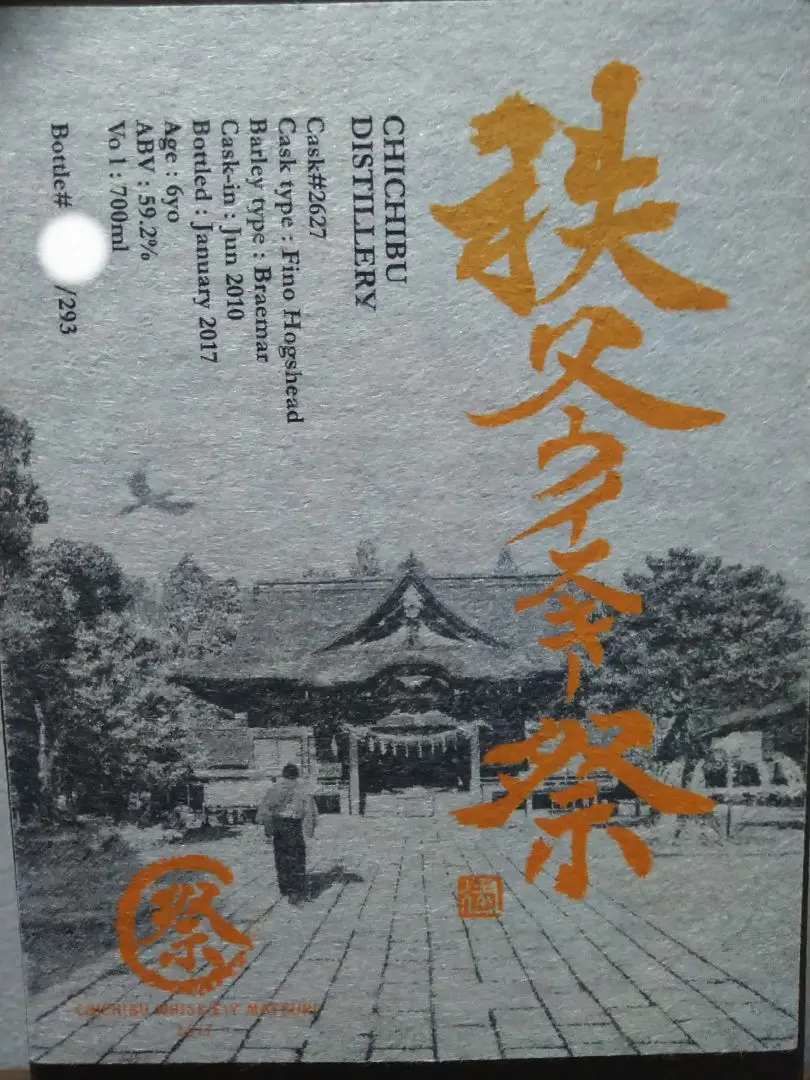 秩父ウイスキー祭
CHICHIBU
DISTILLERY
Cask#2627
Cask type : Fino Hogshead
Barley type : Braemar
Cask-in : Jun 2010
Bottled : January 2017
Age : 6yo
ABV : 59.2%
Vol : 700ml
Bottle# /293
祭
CHICHIBU WHISK(E)Y MATSURI
2017